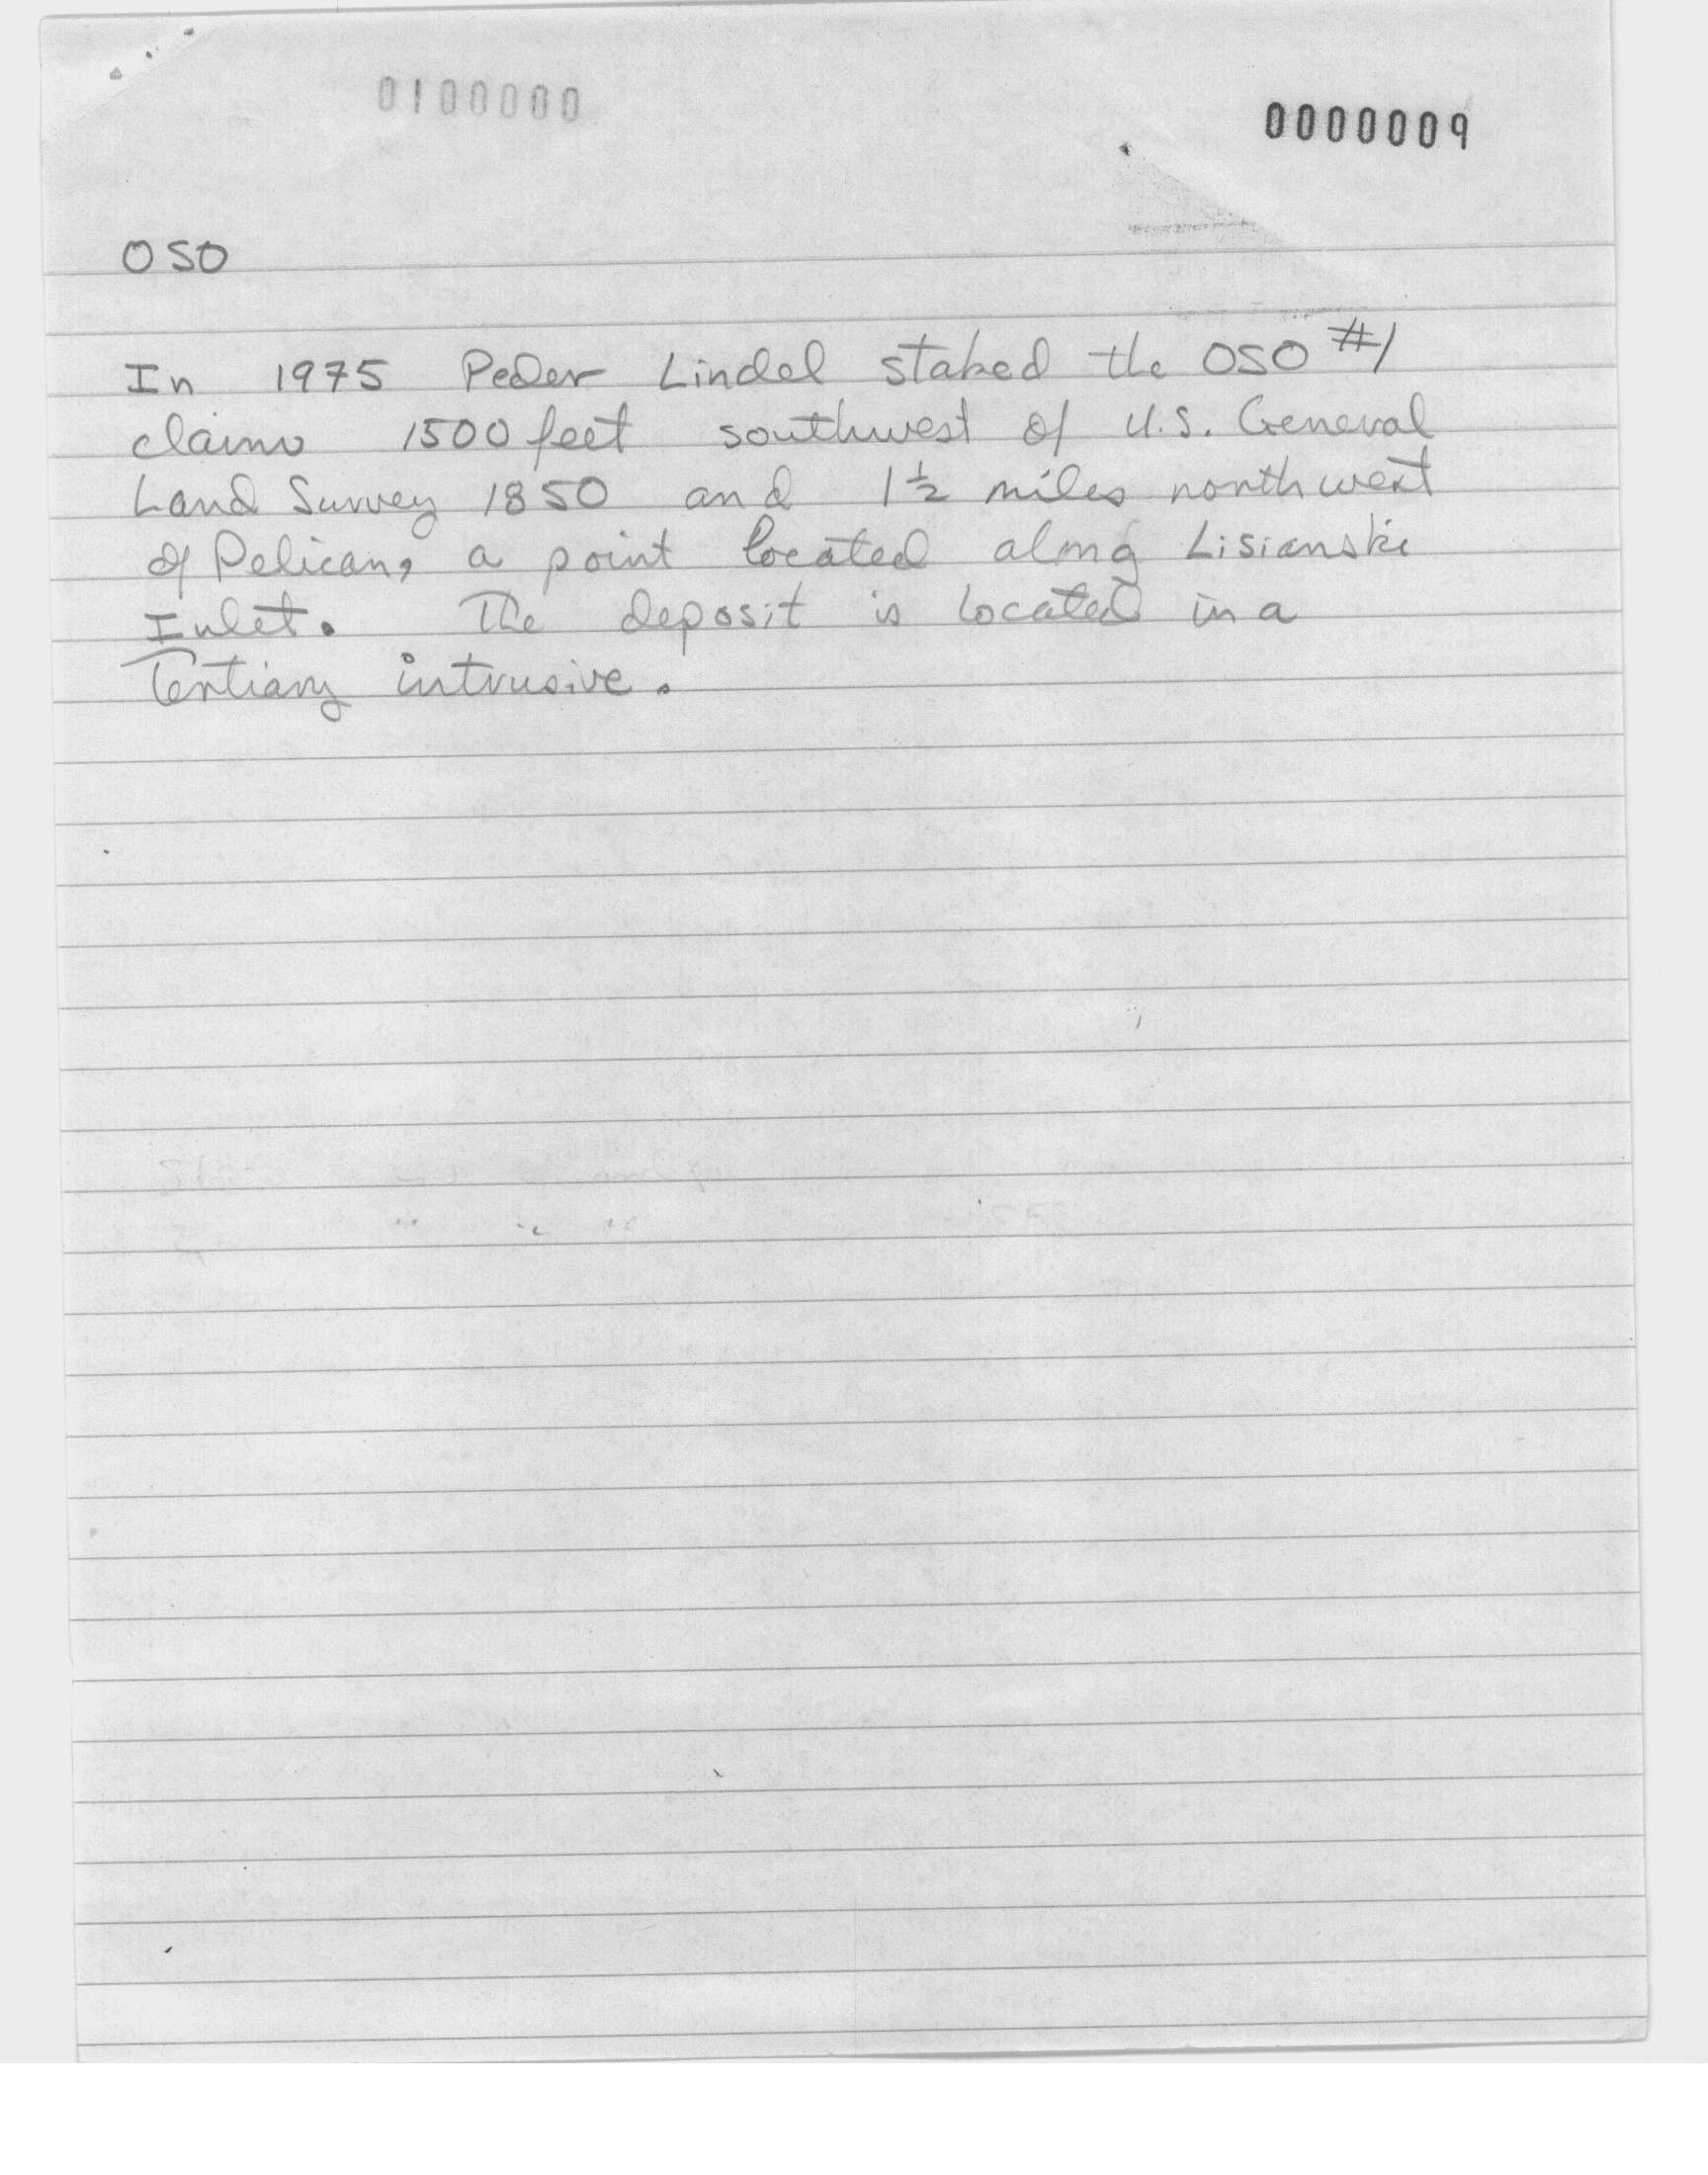 0100000
0000009
OSO
In 1975 Peder Lindel staked the OSO #1
claim 1500 feet southwest of U.S. General
Land Survey 1850 and 1 1/2 miles northwest
of Pelican, a point located along Lisianski
Inlet. The deposit is located in a
Tertiary intrusive.